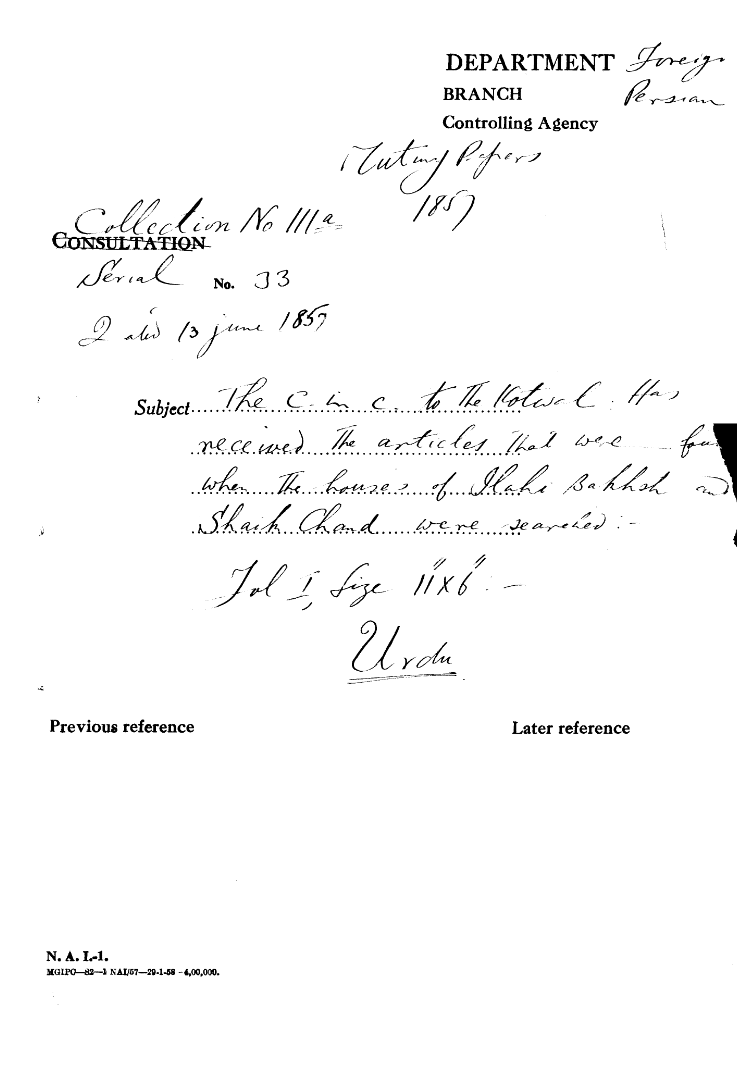 DEPARTMENT Foreign
BRANCH Persian
Controlling Agency
Mutiny Papers
1857
Collection No IIIa
CONSULTATION
Serial No. 33
Dated 13 june 1857
Subject The C. in C. to the Kotwal. Has
received the articles that were fou
when the houses of Ilahi Bakhsh and
Shaikh Chand were searched :-
Fol I, Size 11"X6" :-
Urdu
Previous reference Later reference
N. A. I.-1.
MGIPO—82—1 NAI/57—29-1-58 -4,00,000.